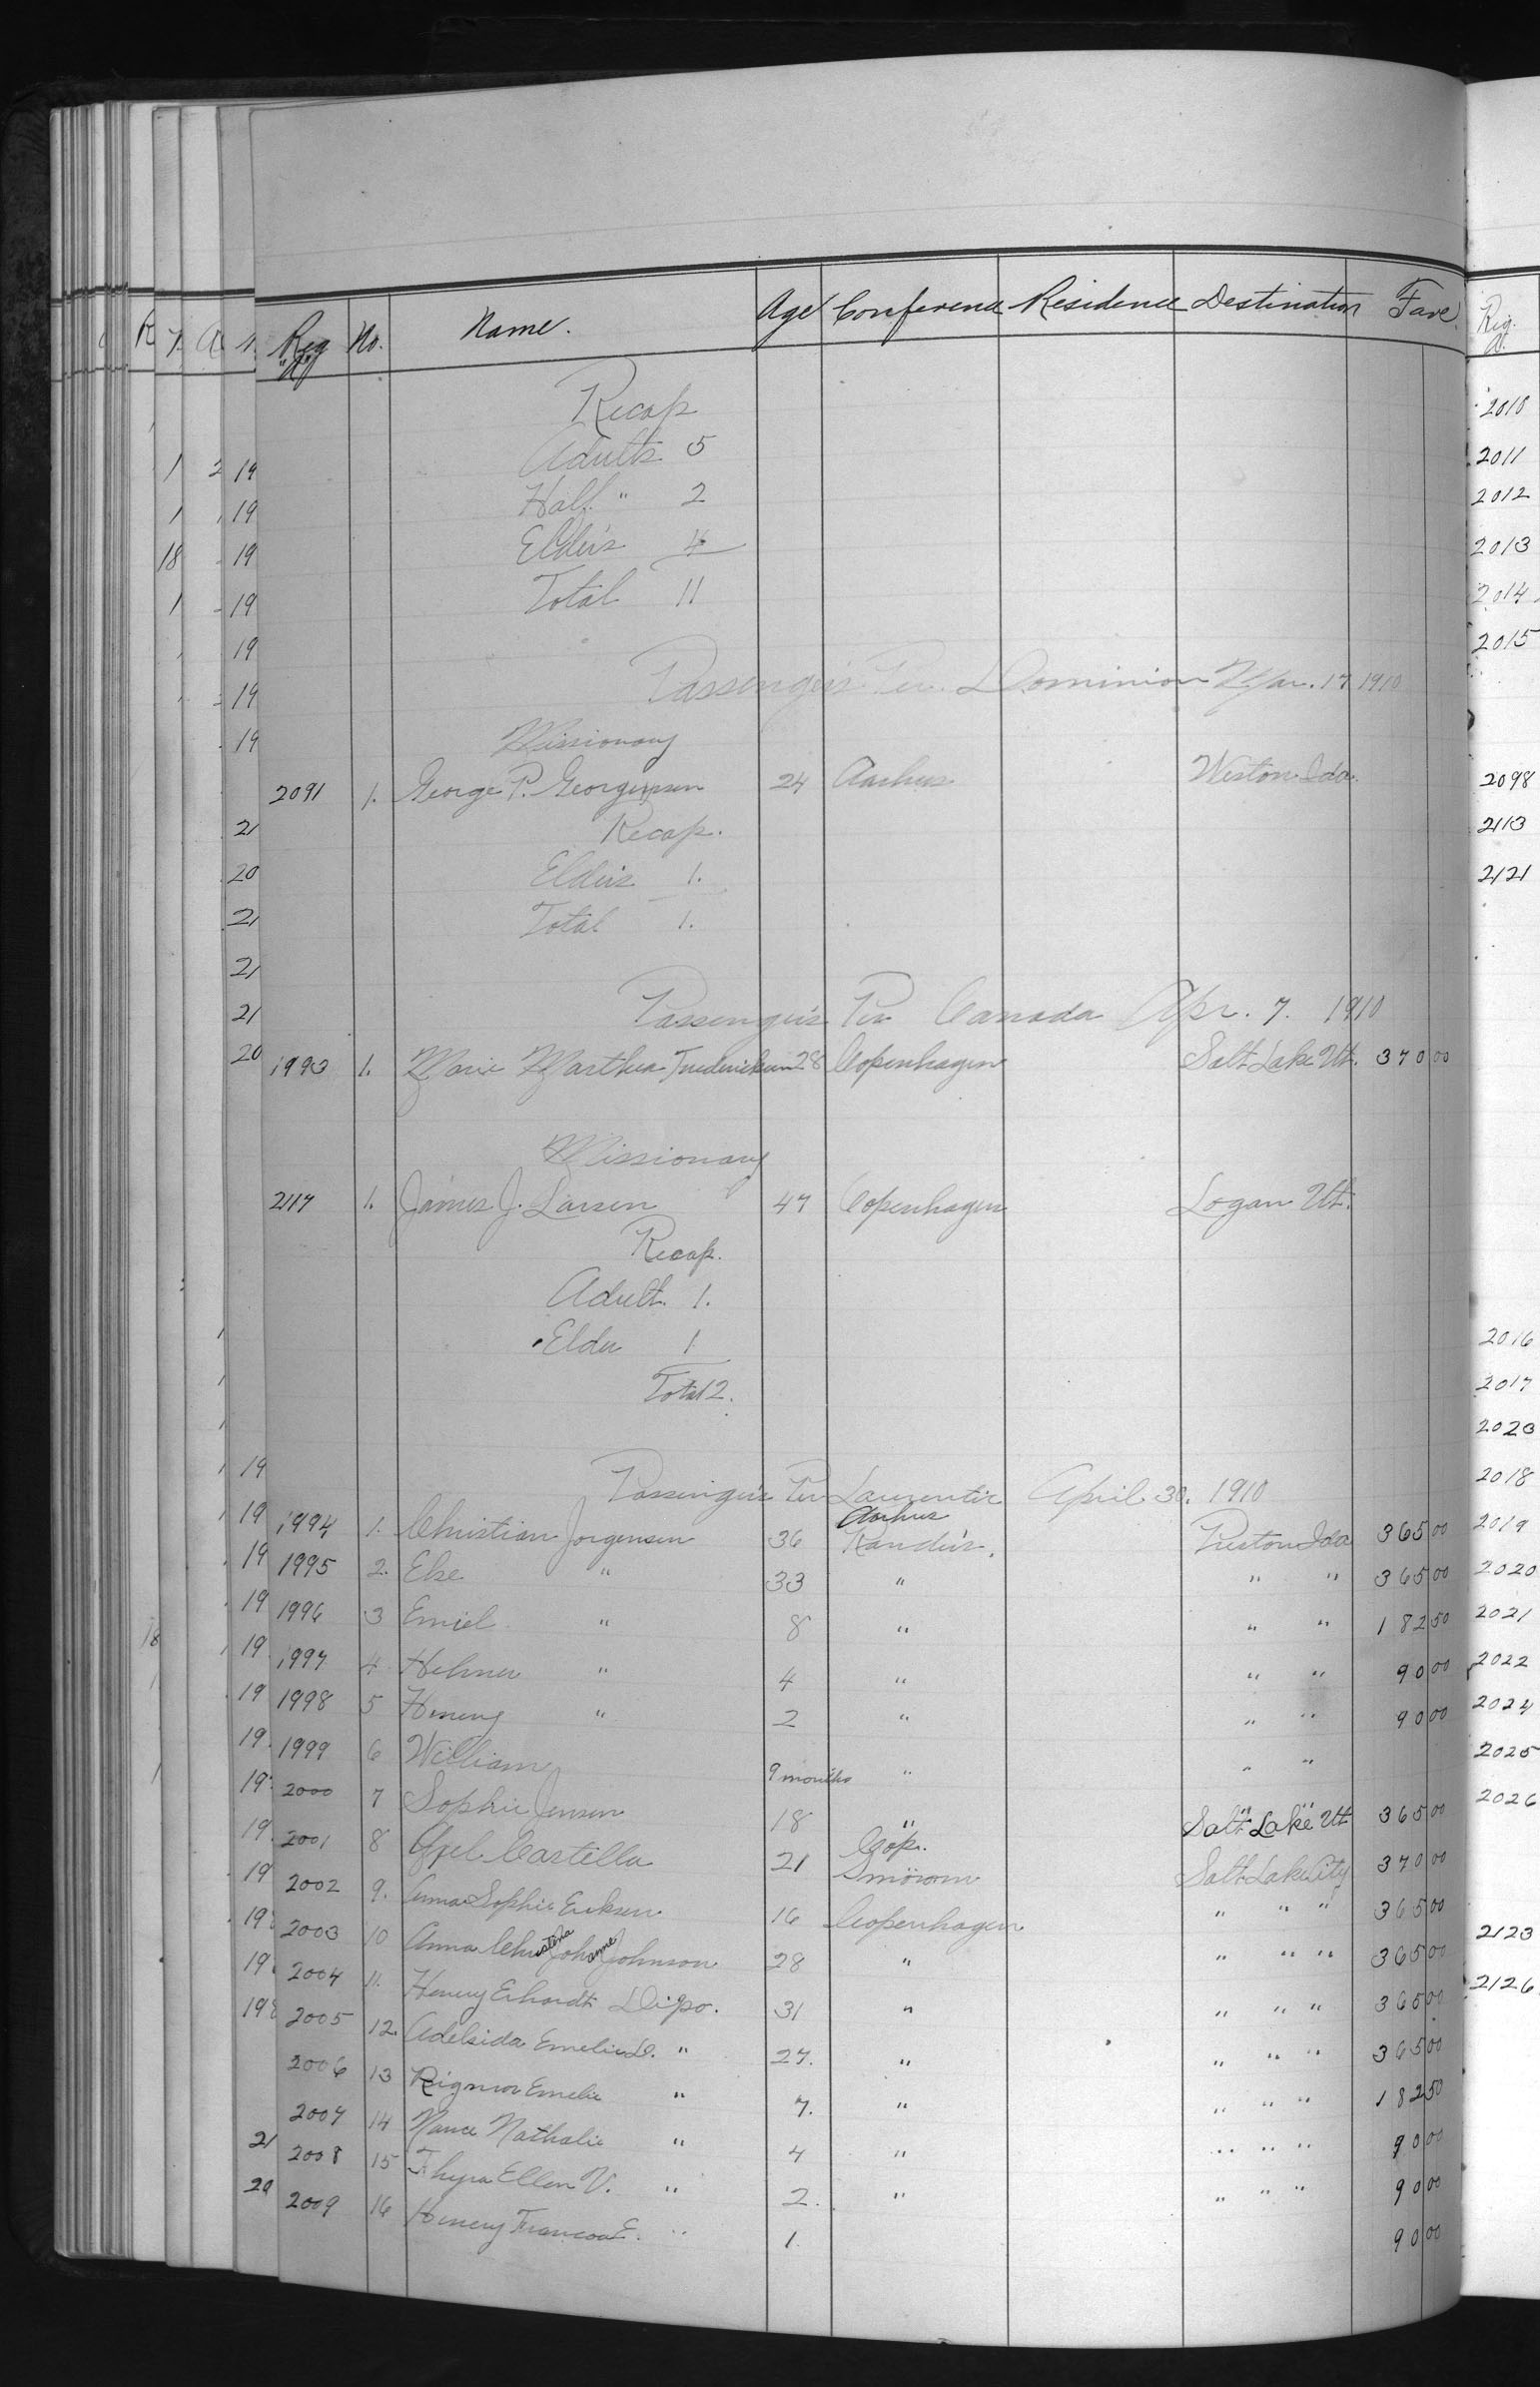 Reg "A" No. Name. Age Conference Residence Destination Fare
Recap
Adults 5
Half " 2
Elders 4
Total 11
Passengers Per. Dominion Mar. 17 1910
Missionary
2091 1. George P. Georgensen 24 Aarhus Weston Ida.
Recap.
Elders 1.
Total 1.
Passengers Per Canada Apr. 7. 1910
1993 1. Marie Marthea Frederiksen 28 Copenhagen Salt Lake Ut. 370 00
Missionary
2117 1. James J. Larsen 47 Copenhagen Logan Ut.
Recap.
Adult. 1.
Elder 1
Total 2.
Passengers Per Laurentic April 30. 1910
Aarhus
1994 1. Christian Jorgensen 36 Randers. Preston Ida 365 00
1995 2. Else " 33 " " " 365 00
1996 3 Emiel " 8 " " " 182 50
1997 4. Helmer " 4 " " " 90 00
1998 5 Henery " 2 " " " 90 00
1999 6 William 9 months " " "
2000 7 Sophie Jensen 18 " Salt Lake Ut 365 00
Cop.
2001 8 Axel Castella 21 Smörom Salt Lake City 370 00
2002 9. Anna Sophie Eriksen 16 Copenhagen " " " 365 00
2003 10 Anna Christina Johanne Johnson 28 " " " " 365 00
2004 11. Henry Erhardt Digso. 31 " " " " 365 00
2005 12. Adelsida Emelie D. " 27. " " " " 365 00
2006 13 Rigmor Emelie " 7. " " " " 182 50
2007 14 Nance Nathalie " 4 " " " " 90 00
2008 15 Thyra Ellen V. " 2. " " " " 90 00
2009 16 Henery Francou E. " 1. 90 00
Reg. A.
2010
2011
2012
2013
2014
2015
2098
2113
2121
2016
2017
2023
2018
2019
2020
2021
2022
2024
2025
2026
2123
2126